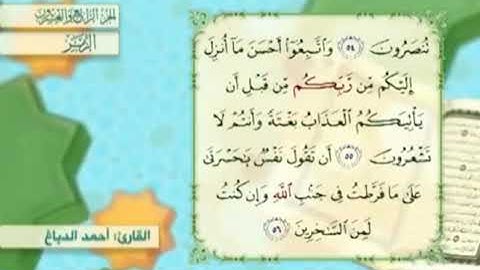 الجزء الرابع والعشرون
الزمر
تُنصَرُونَ ٥٤ وَاتَّبِعُوٓا۟ أَحْسَنَ مَآ أُنزِلَ
إِلَيْكُم مِّن رَّبِّكُم مِّن قَبْلِ أَن
يَأْتِيَكُمُ الْعَذَابُ بَغْتَةً وَأَنتُمْ لَا
تَشْعُرُونَ ٥٥ أَن تَقُولَ نَفْسٌ يَٰحَسْرَتَىٰ
عَلَىٰ مَا فَرَّطتُ فِى جَنۢبِ اللَّهِ وَإِن كُنتُ
لَمِنَ السَّٰخِرِينَ ٥٦
القارئ: أحمد الدباغ